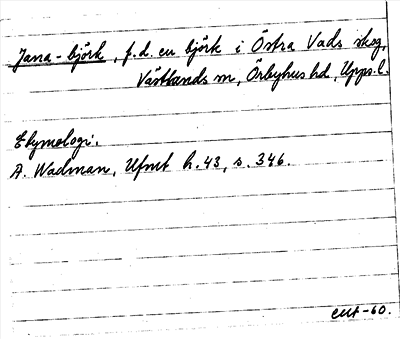 Jana-björk, f.d. en björk i Östra Vads skog,
Västlands sn, Örbyhus hd, Upps. l.
Etymologi.
A. Wadman, Ufmt h. 43, s. 346.
-60.